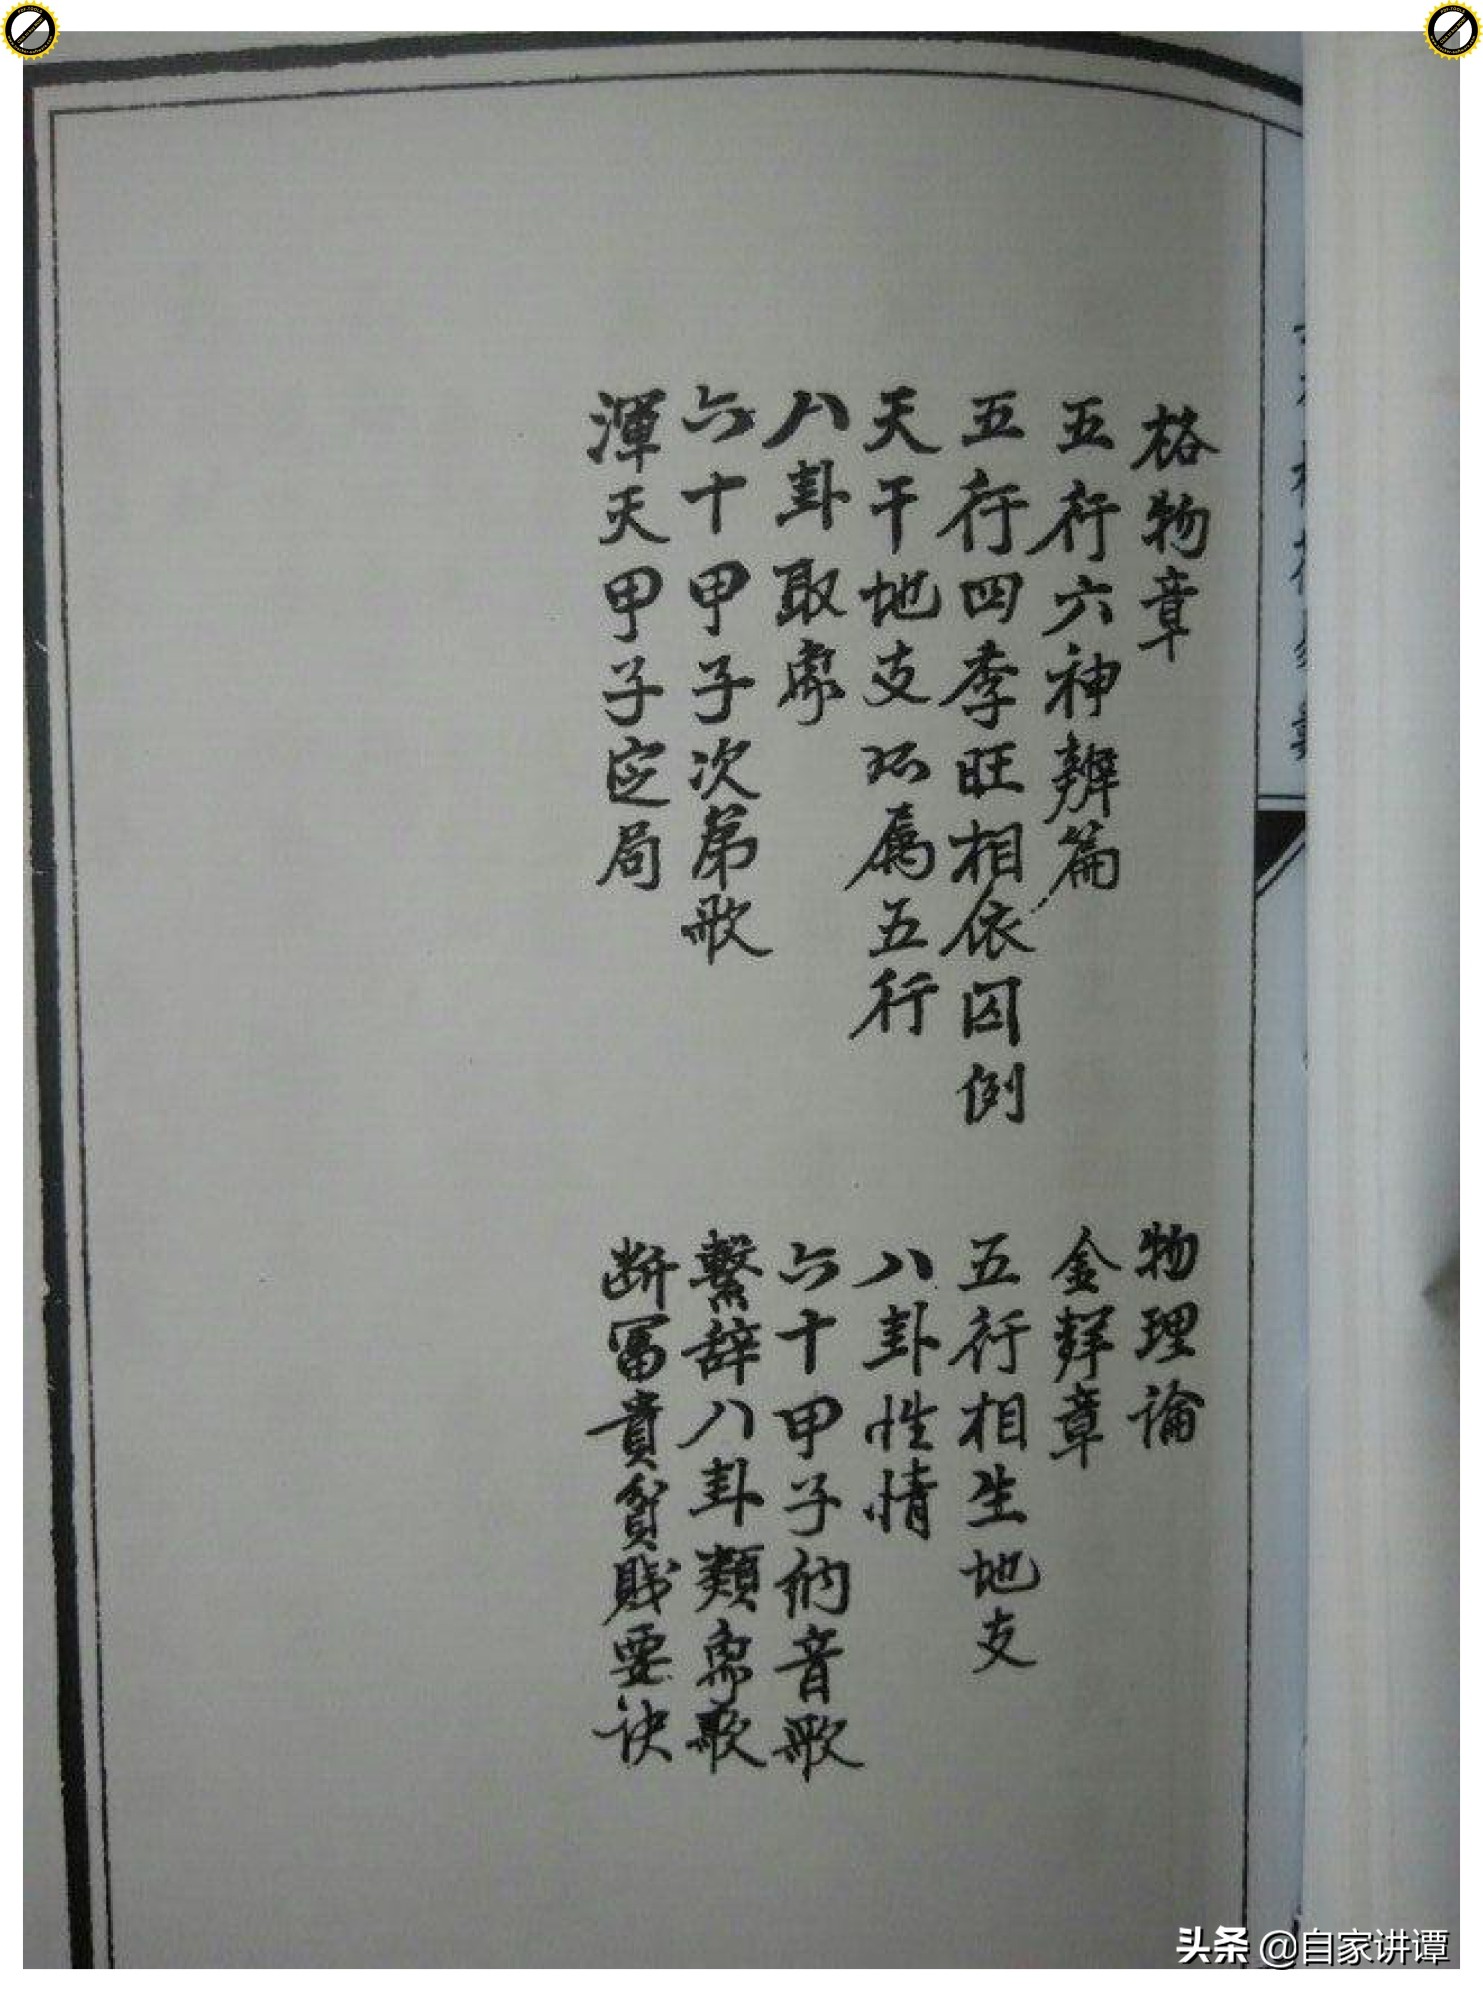 格物章
物理論
五行六神辨篇
金鎖章
五行四季旺相依囚例
五行相生地支
天干地支所属五行
八卦性情
八卦取象
六十甲子纳音歌
六十甲子次第歌
繫辞八卦類象歌
渾天甲子定局
断冨貴貧賎要诀
头条 @自家讲谭